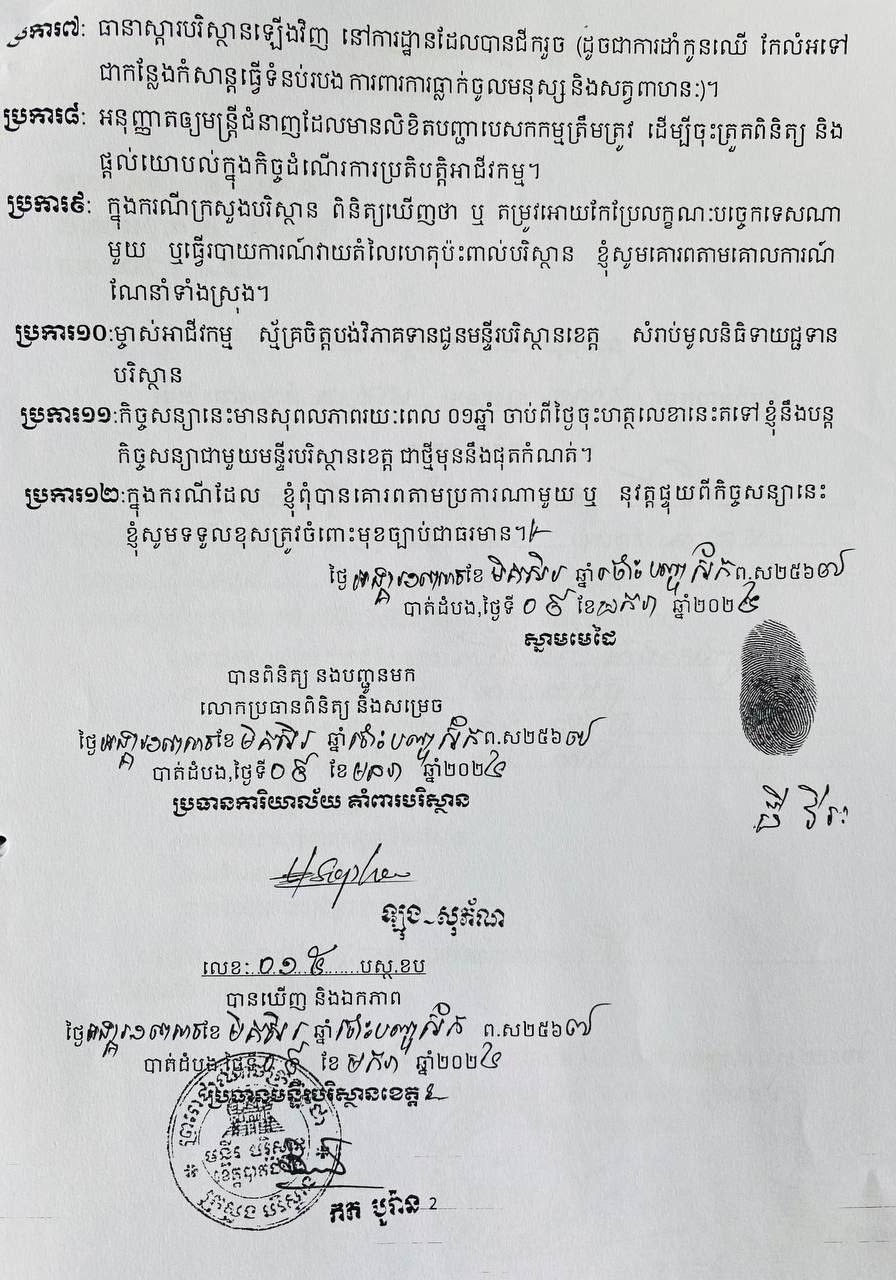 ប្រការ៧: ធានាស្តារបរិស្ថានឡើងវិញ នៅការដ្ឋានដែលបានជីករួច (ដូចជាការដាំកូនឈើ កែលំអទៅ
ជាកន្លែងកំសាន្តធ្វើទំនប់របង ការពារការធ្លាក់ចូលមនុស្ស និងសត្វពាហនៈ)។
ប្រការ៨: អនុញ្ញាតឲ្យមន្ត្រីជំនាញដែលមានលិខិតបញ្ជាបេសកកម្មត្រឹមត្រូវ ដើម្បីចុះត្រួតពិនិត្យ និង
ផ្តល់យោបល់ក្នុងកិច្ចដំណើរការប្រតិបត្តិអាជីវកម្ម។
ប្រការ៩: ក្នុងករណីក្រសួងបរិស្ថាន ពិនិត្យឃើញថា ឬ តម្រូវអោយកែប្រែលក្ខណៈបច្ចេកទេសណា
មួយ ឬធ្វើរបាយការណ៍វាយតំលៃហេតុប៉ះពាល់បរិស្ថាន ខ្ញុំសូមគោរពតាមគោលការណ៍
ណែនាំទាំងស្រុង។
ប្រការ១០:ម្ចាស់អាជីវកម្ម ស្ម័គ្រចិត្តបង់វិភាគទានជូនមន្ទីរបរិស្ថានខេត្ត សំរាប់មូលនិធិទាយជ្ជទាន
បរិស្ថាន
ប្រការ១១:កិច្ចសន្យានេះមានសុពលភាពរយៈពេល ០១ឆ្នាំ ចាប់ពីថ្ងៃចុះហត្ថលេខានេះតទៅ ខ្ញុំនឹងបន្ត
កិច្ចសន្យាជាមួយមន្ទីរបរិស្ថានខេត្ត ជាថ្មីមុននឹងផុតកំណត់។
ប្រការ១២:ក្នុងករណីដែល ខ្ញុំពុំបានគោរពតាមប្រការណាមួយ ឬ នុវត្តផ្ទុយពីកិច្ចសន្យានេះ
ខ្ញុំសូមទទួលខុសត្រូវចំពោះមុខច្បាប់ជាធរមាន។
ថ្ងៃ អង្គារ ខែ មិគសិរ ឆ្នាំ ថោះ បញ្ចស័ក ព.ស២៥៦៧
បាត់ដំបង,ថ្ងៃទី ០៩ ខែ មករា ឆ្នាំ២០២៤
ស្នាមមេដៃ
បានពិនិត្យ នងបញ្ជូនមក
លោកប្រធានពិនិត្យ និងសម្រេច
ថ្ងៃ អង្គារ ខែ មិគសិរ ឆ្នាំ ថោះ បញ្ចស័ក ព.ស២៥៦៧
បាត់ដំបង,ថ្ងៃទី ០៩ ខែ មករា ឆ្នាំ២០២៤
ប្រធានការិយាល័យ គាំពារបរិស្ថាន
ធី វីរៈ
ឡុង សុភ័ណ
លេខ: ០១៥ បស្ថ.ខប
បានឃើញ និងឯកភាព
ថ្ងៃ អង្គារ ខែ មិគសិរ ឆ្នាំ ថោះ បញ្ចស័ក ព.ស២៥៦៧
បាត់ដំបង,ថ្ងៃទី ០៩ ខែ មករា ឆ្នាំ២០២៤
ប្រធានមន្ទីរបរិស្ថានខេត្ត
មន្ទីរ បរិស្ថាន
ខេត្តបាត់ដំបង
ក្រសួង បរិស្ថាន
កត បូរ៉ាន 2